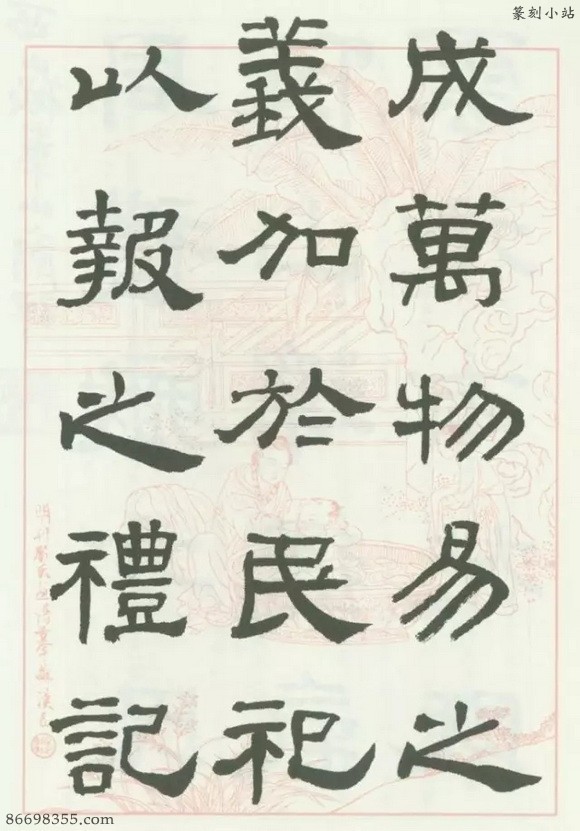 篆刻小站
成萬物易之
義加於民祀
以報之禮記
86698355.com